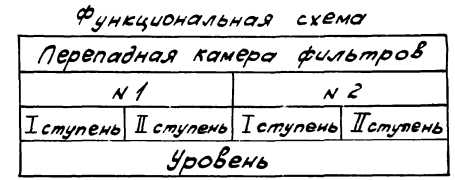 Функциональная схема
Перепадная камера фильтров
N 1 N 2
I ступень II ступень I ступень II ступень
Уровень